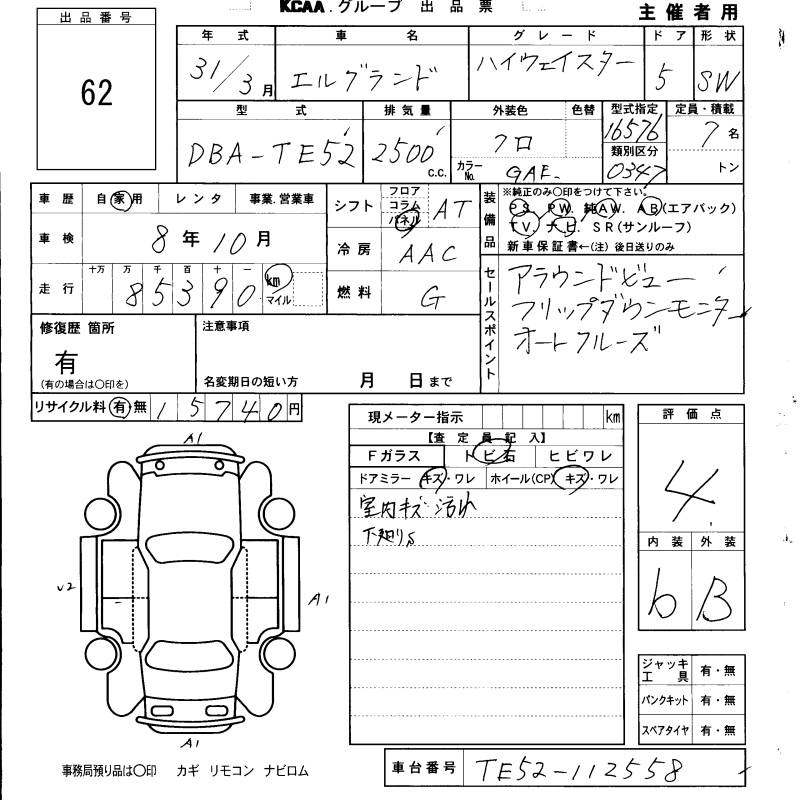 KCAA.グループ 出品票
主催者用
出品番号
62
年式 車名 グレード ドア 形状
31/3月 エルグランド ハイウェイスター 5 SW
型式 排気量 外装色 色替 型式指定 定員・積載
DBA-TE52 2500 c.c. クロ 16576 7名
カラーNo. GAE 類別区分 0347 トン
車歴 自家用 レンタ 事業.営業車
車検 8年10月
走行 十万 万 千 百 十 一
85390 km マイル
シフト フロア コラム パネル AT
冷房 AAC
燃料 G
装備品 ※純正のみ〇印をつけて下さい。
PS. PW. 純AW. AB(エアバック)
TV. ナビ. SR(サンルーフ)
新車保証書←(注) 後日送りのみ
セールスポイント
アラウンドビュー
フリップダウンモニター
オートクルーズ
修復歴 箇所
有
(有の場合は〇印を)
注意事項
名変期日の短い方 月 日まで
リサイクル料 有・無 15740円
現メーター指示 km
【査定員記入】
Fガラス トビ石 ヒビワレ
ドアミラー キズ・ワレ ホイール(CP) キズ・ワレ
室内キズ 汚れ
下廻りS
評価点
4
内装 外装
b B
ジャッキ工具 有・無
パンクキット 有・無
スペアタイヤ 有・無
A1
U2
A1
A1
事務局預り品は〇印 カギ リモコン ナビロム
車台番号 TE52-112558